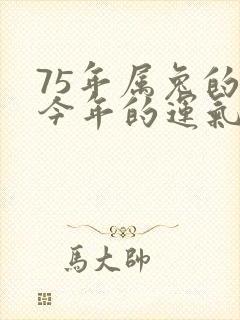 75年属兔的
今年的運氣
馬大帥